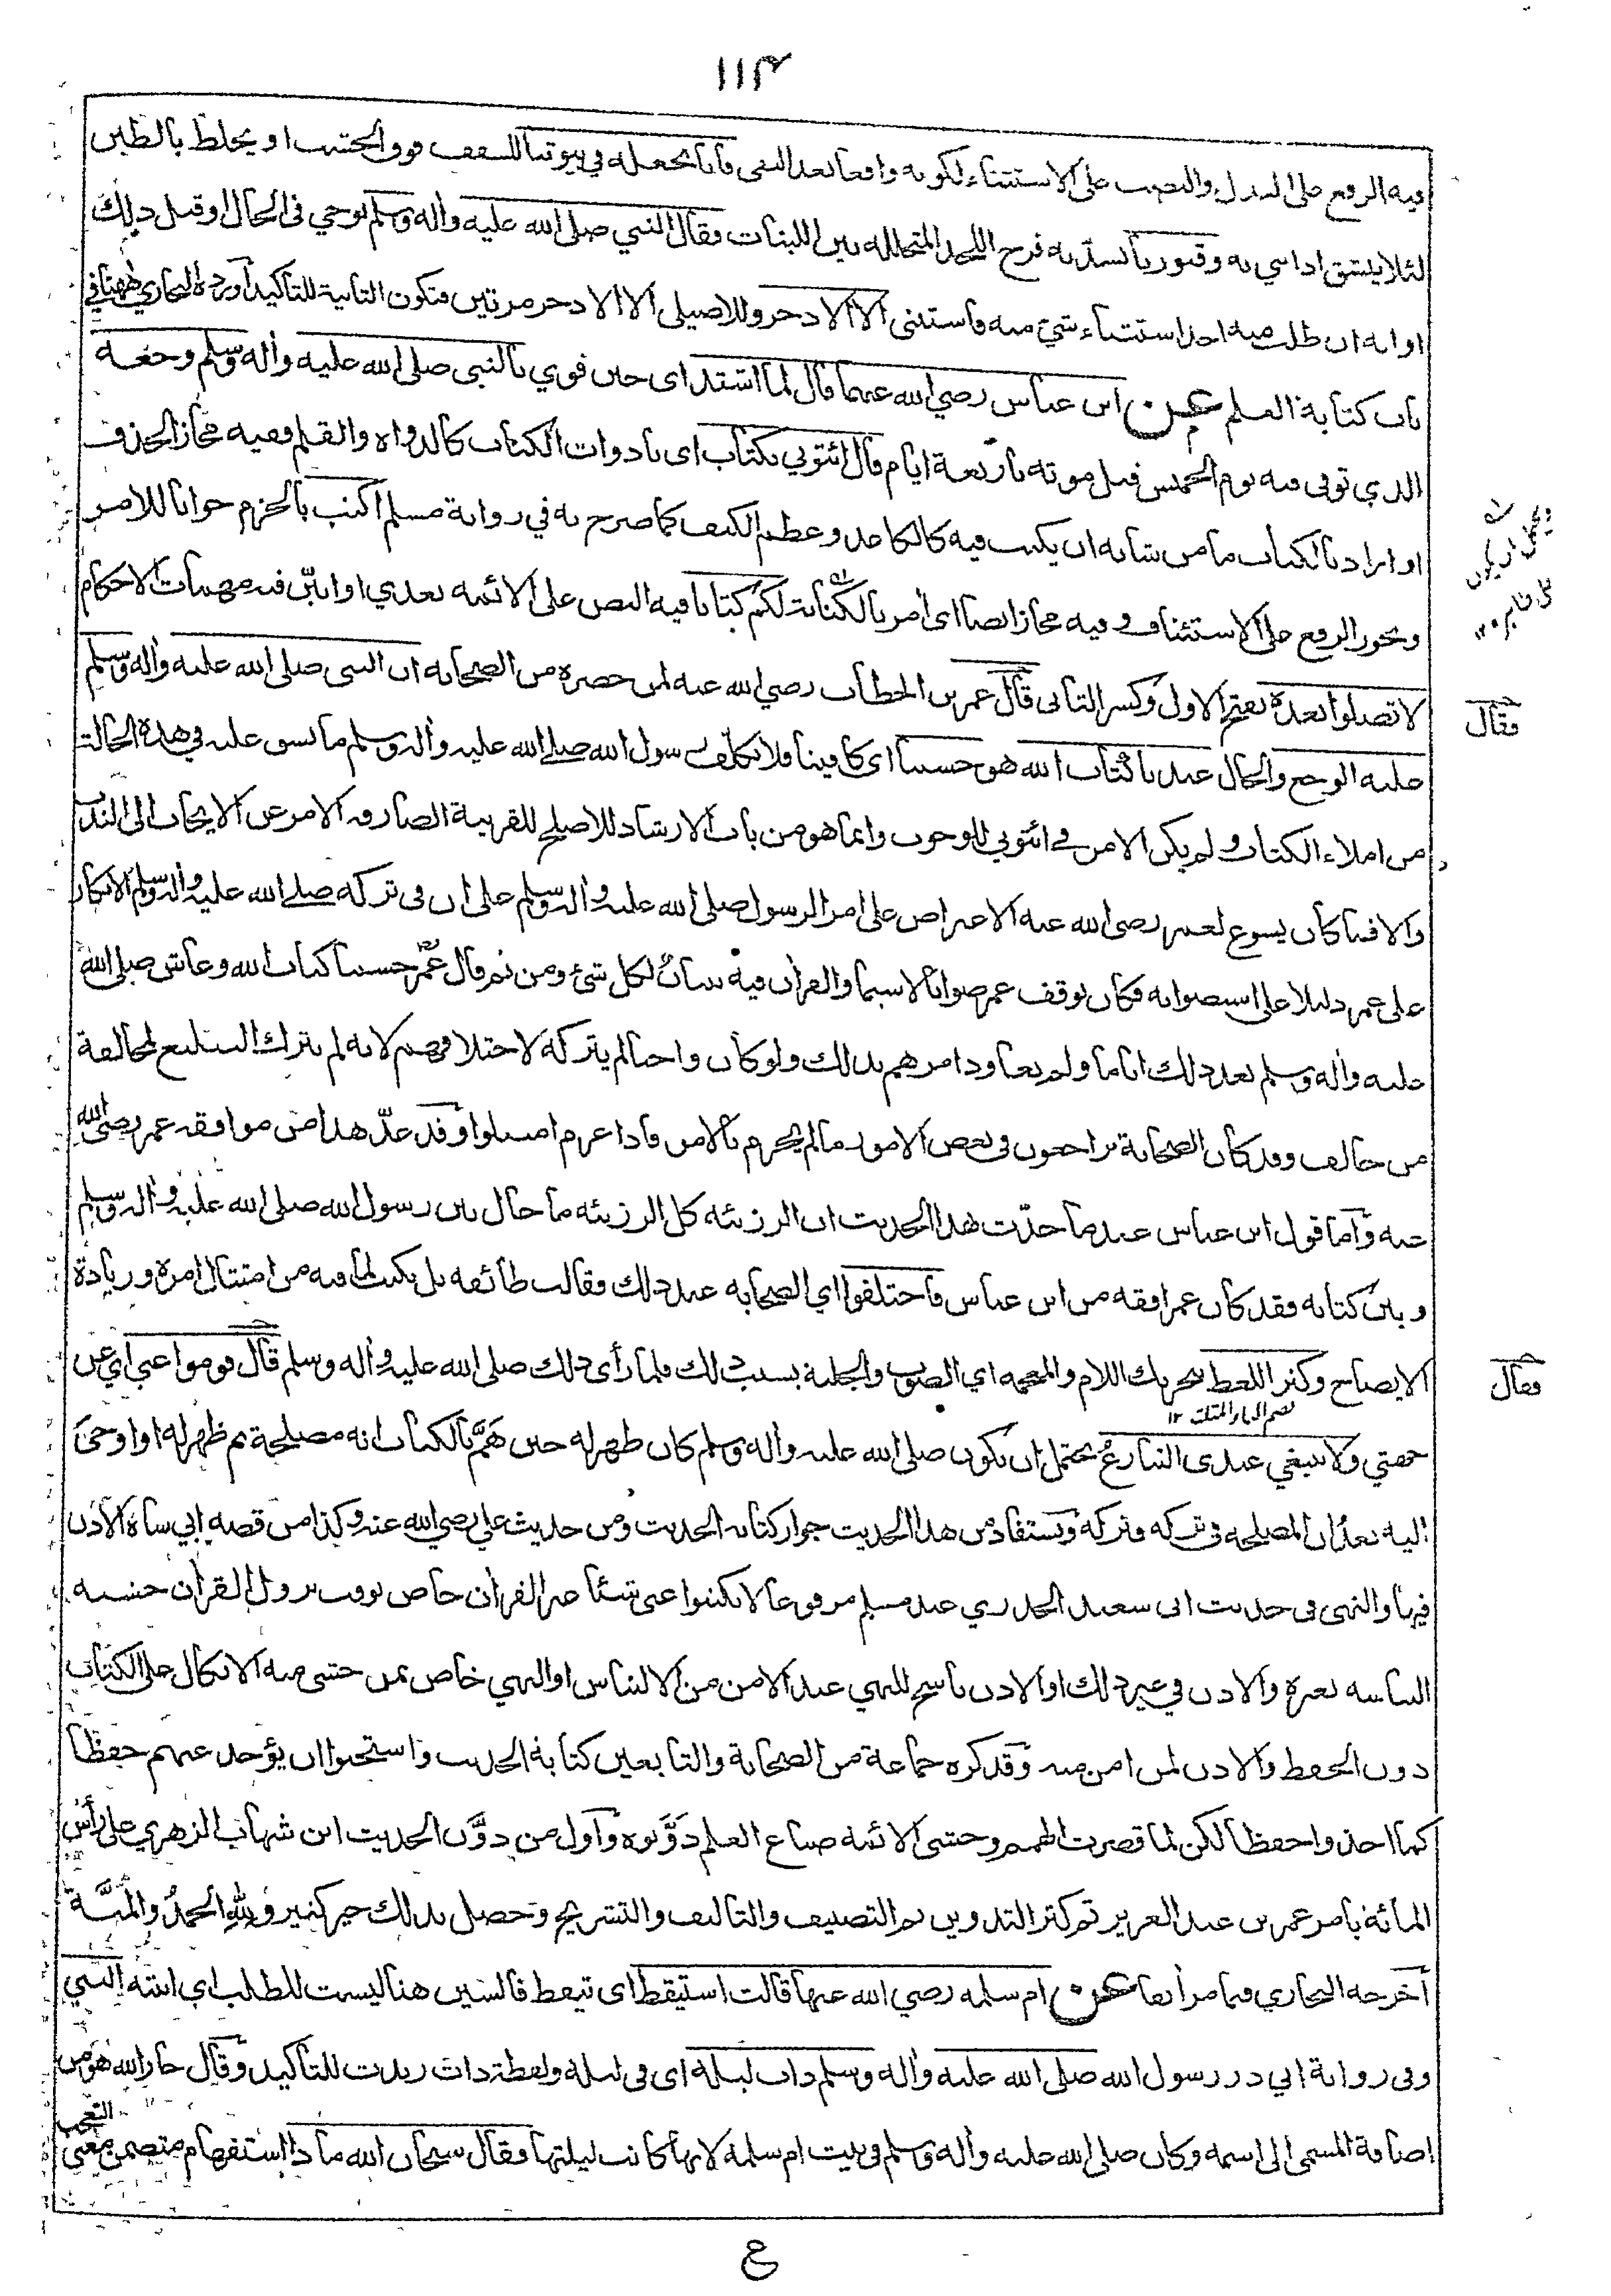 ١١٣
فيه الرفع على البدل والنصب على الاستثناء لكونه واقعا بعد النفي فانا نجعله في بيوتنا للسقف فوق الخشب او يخلط بالطين
لئلا ينشق اذا بني به وقبورنا نسد به فرج اللحد المتخللة بين اللبنات فقال النبي صلى الله عليه وأله وسلم بوحي في الحال او قبل ذلك
او انه ان طلب منه احد استثناء شيء منه فاستثنى الا الاذخر وللاصيلي الا الاذخر مرتين فتكون الثانية للتأكيد أورده البخاري ههنا في
باب كتابة العلم عن ابن عباس رضي الله عنهما قال لما اشتد اى حين قوي بالنبى صلى الله عليه وأله وسلم وجعه
الذي توفى فيه يوم الخميس قبل موته باربعة ايام قال ائتوني بكتاب اى بادوات الكتاب كالدواة والقلم ففيه مجاز الحذف
او اراد بالكتاب ما من شانه ان يكتب فيه كالكاغد وعظم الكتف كما صرح به في رواية مسلم اكتب بالجزم جوابا للامر
ويجوز الرفع على الاستئناف وفيه مجاز ايضا اى أمر بالكتابة لكم كتابا فيه النص على الائمه بعدي او ابيّن فيه مهمات الاحكام
لا تضلوا بعده بفتح الاول وكسر الثانى قال عمر بن الخطاب رضي الله عنه لمن حضره من الصحابه ان النبى صلى الله عليه وأله وسلم
غلبه الوجع والحال عندنا كتاب الله هو حسبنا اى كافينا فلا نكلف رسول الله صلے الله عليه وأله وسلم ما يشق عليه في هذه الحالة
من املاء الكتاب ولم يكن الامر في ائتوني للوجوب وانما هو من باب الارشاد للاصلح للقرينة الصارفه الامر عن الايجاب الى الندب
والا فما كان يسوغ لعمر رضى الله عنه الاعتراض على امر الرسول صلى الله عليه وأله وسلم على ان فى تركه صلے الله عليه وأله وسلم الانكار
على عمر دليلا على استصوابه فكان توقف عمر صوابا لاسيما والقرأن فيه تبيان لكل شئ ومن ثم قال عمر حسبنا كتاب الله وعاش صلى الله
عليه وأله وسلم بعد ذلك اياما ولم يعاود امرهم بذلك ولو كان واجبا لم يتركه لاختلافهم لانه لم يترك التبليغ لمخالفة
من خالف وقد كان الصحابة يراجعون في بعض الامور ما لم يجزم بالامر فاذا عزم امتثلوا وقد عدّ هذا من موافقه عمر رضى الله
عنه واما قول ابن عباس عندما حدّث هذا الحديث ان الرزيئه كل الرزيئه ما حال بين رسول الله صلى الله عليه وأله وسلم
وبين كتابه فقد كان عمر افقه من ابن عباس فاختلفوا اي الصحابه عند ذلك فقالت طائفه بل يكتب لما فيه من امتثال امره وزيادة
الايضاح وكثر اللغط بتحريك اللام والمعجمه اي الصوت والجلبة بسبب ذلك فلما رأى ذلك صلى الله عليه وأله وسلم قال قوموا عني اي عن
بضم الثاء المثلثه ١٢
جهتي ولا ينبغي عندى التنازع يحتمل ان يكون صلى الله عليه وأله وسلم كان ظهر له حين همّ بالكتاب انه مصلحة ثم ظهر له او اوحي
اليه بعد ان المصلحه فى تركه فتركه ويستفاد من هذا الحديث جواز كتابه الحديث ومن حديث على رضى الله عنه وكذا من قصه ابي شاه الاذن
فيها والنهى فى حديث ابى سعيد الخدري عند مسلم مرفوعا لا تكتبوا عنى شيئا غير القرأن خاص بوقت نزول القرأن خشيه
التباسه بغيره والاذن في غير ذلك او الاذن ناسخ للنهي عند الامن من الالتباس او النهي خاص بمن خشى منه الاتكال على الكتاب
دون الحفظ والاذن لمن امن منه وقد كره جماعة من الصحابة والتابعين كتابة الحديث واستحبوا ان يؤخذ عنهم حفظا
كما اخذوا حفظا لكن لما قصرت الهمم وخشى الائمه ضياع العلم دوّنوه وأول من دوّن الحديث ابن شهاب الزهري على رأس
المائة بامر عمر بن عبد العزيز ثم كثر التدوين ثم التصنيف والتاليف والتشريح وحصل بذلك خير كثير ولله الحمد والمنة
أخرجه البخاري فيما مر أنفا عن ام سلمه رضي الله عنها قالت استيقظ اى تيقظ فالسين هنا ليست للطلب اي انتبه النبي
وفى رواية ابي ذر رسول الله صلى الله عليه وأله وسلم ذات ليلة اى فى ليلة ولفظة ذات زيدت للتأكيد وقال جار الله هو من
اضافة المسمى الى اسمه وكان صلى الله عليه وأله وسلم فى بيت ام سلمة لانها كانت ليلتها فقال سبحان الله ماذا استفهام متضمن معنى
التعجب
ويحتمل ان يكون
على ظاهره ١٢
فقال
فقال
ع